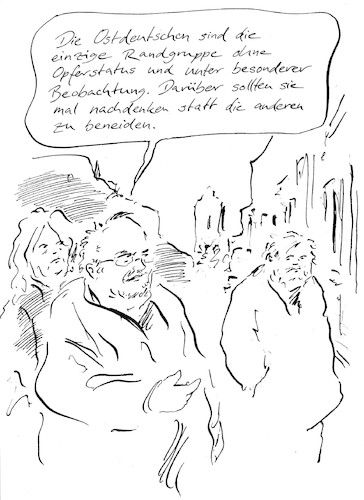 Die Ostdeutschen sind die
einzige Randgruppe ohne
Opferstatus und unter besonderer
Beobachtung. Darüber sollten sie
mal nachdenken statt die anderen
zu beneiden.